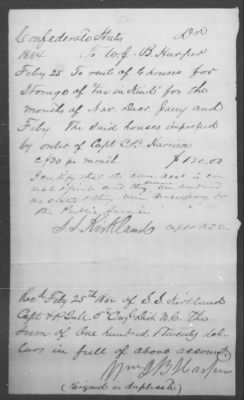 Confederate States Dr
1864 To W. J. B. Harper
Feby 25 To rent of 6 houses for
Storage of "Tax in Kind" for the
months of Nov. Decr Jany and
Feby. The said houses impressed
by order of Capt C. B. Harrison
@ $30 per month $120.00
I certify that the above acct is cor
rect
the Public Service
S. S. Kirkland Capt & A. Q. M.
Recd Feby 25th 1864 of S. S. Kirkland
Capt & A. Q. M. 5th Cong Dist N. C. The
Sum of One hundred & twenty dol-
lars in full of above account
Wm J. B. Harper
(Signed in duplicate)